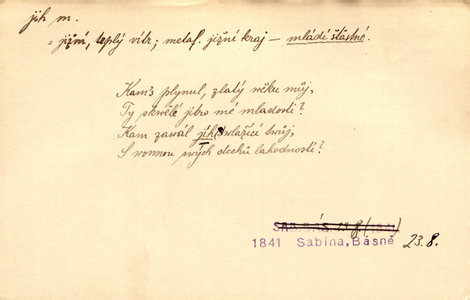 jih m.
= jižní, teplý vítr; metaf. jižní kraj — mládí šťastné.
Kam's plynul, zlatý věku můj,
Ty skvělé jitro mé mladosti?
Kam zavál jih svlažící tvůj,
S vonnou svých dechů lahodností?
SAB. BÁS. 23 8 (1841)
1841 Sabina, Básně 23.8.